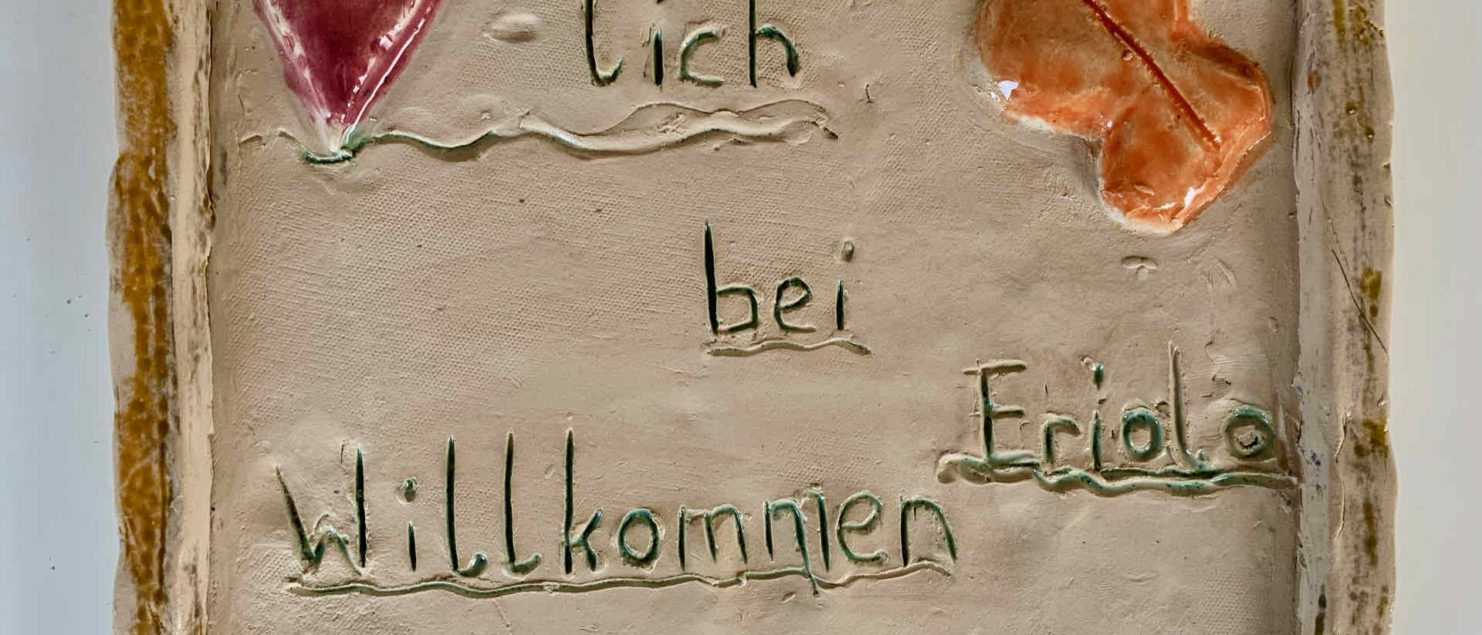 lich
bei
Eriolo
Willkommen